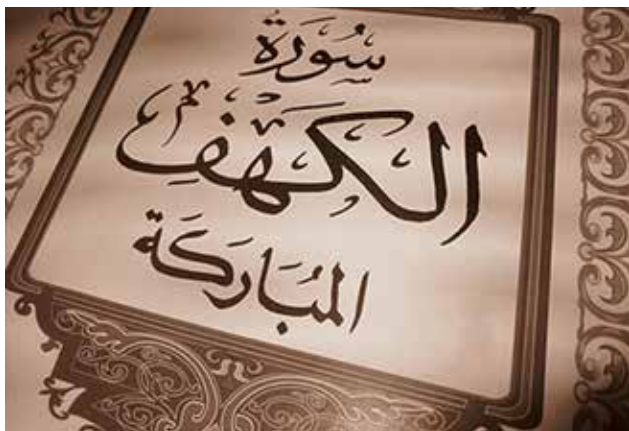 سُورَة
الكَهْفِ
المُبَارَكَة